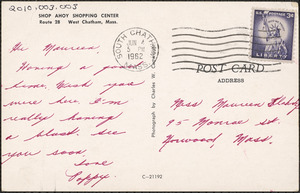 2010.003.003
SHOP AHOY SHOPPING CENTER
Route 28 West Chatham, Mass.
SOUTH CHATHAM
JUN
5 PM
1962
U.S. POSTAGE 3¢
LIBERTY
POST CARD
ADDRESS
Hi Maureen,
Having a
time. Wish you
were here. I'm
really having
a blast. See
you soon
Love
Poppy.
Photograph by Charles W.
Miss Maureen
95 Monroe St.
Norwood Mass.
C-21192